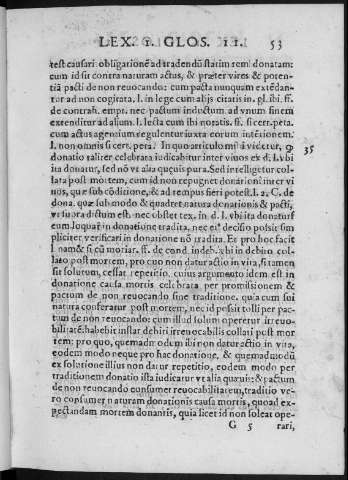 LEX. 1. GLOS. II. 53
test causari obligationē ad tradendū statim rem donatam:
cum id sit contra naturam actus, & præter vires & poten-
tiā pacti de non reuocando: cum pacta nunquam extēdan-
tur ad non cogitata. l. in lege cum alijs citatis in. gl. ibi. ff.
de contrah. emp. nec pactum inductum ad vnum finem
extenditur ad alium. l. lecta cum ibi notatis. ff. si cert. peta.
cum actus agentium regulentur iuxta eorum intētionem.
l. non omnis si cert. peta. In quo articulo mihi videtur, ꝙ 35
donatio taliter celebrata iudicabitur inter viuos ex d. l. vbi
ita donatur, sed nō vt alia quęuis pura. Sed intelligetur col-
lata post mortem, cum id non repugnet donationi inter vi
uos, quæ sub cōditione, & ad tempus fieri potest. l. 2. C. de
dona. quæ sub modo & quadret natura donationis & pacti,
vt supra dictum est. nec obstet tex. in. d. l. vbi ita donatur:
cum loquatur in donatione tradita, nec eius decisio possit sim
pliciter verificari in donatione nō tradita. Et pro hoc facit
l. nam & si cū moriar. ff. de cond. indeb. vbi in debito col-
lato post mortem, pro quo non datur actio in vita, si tamen
sit solutum, cessat repetitio. cuius argumento idem est in
donatione causa mortis celebrata per promissionem &
pactum de non reuocando sine traditione. quia cum sui
natura conferatur post mortem, nec id possit tolli per pac-
tum de non reuocando: cum illud solùm operetur irreuo-
bilitatē: habebit instar debiti irreuocabilis collati post mor
tem: pro quo, quemadmodum ibi non datur actio in vita,
eodem modo neque pro hac donatione, & quemadmodū
ex solutione illius non datur repetitio, eodem modo per
traditionem donatio ista iudicatur vt alia quæuis: & pactum
de non reuocando consumet reuocabilitatem, traditio ve-
ro consumet naturam donationis causa mortis, quoad ex-
pectandam mortem donantis, quia licet id non soleat ope-
G 5 rari,